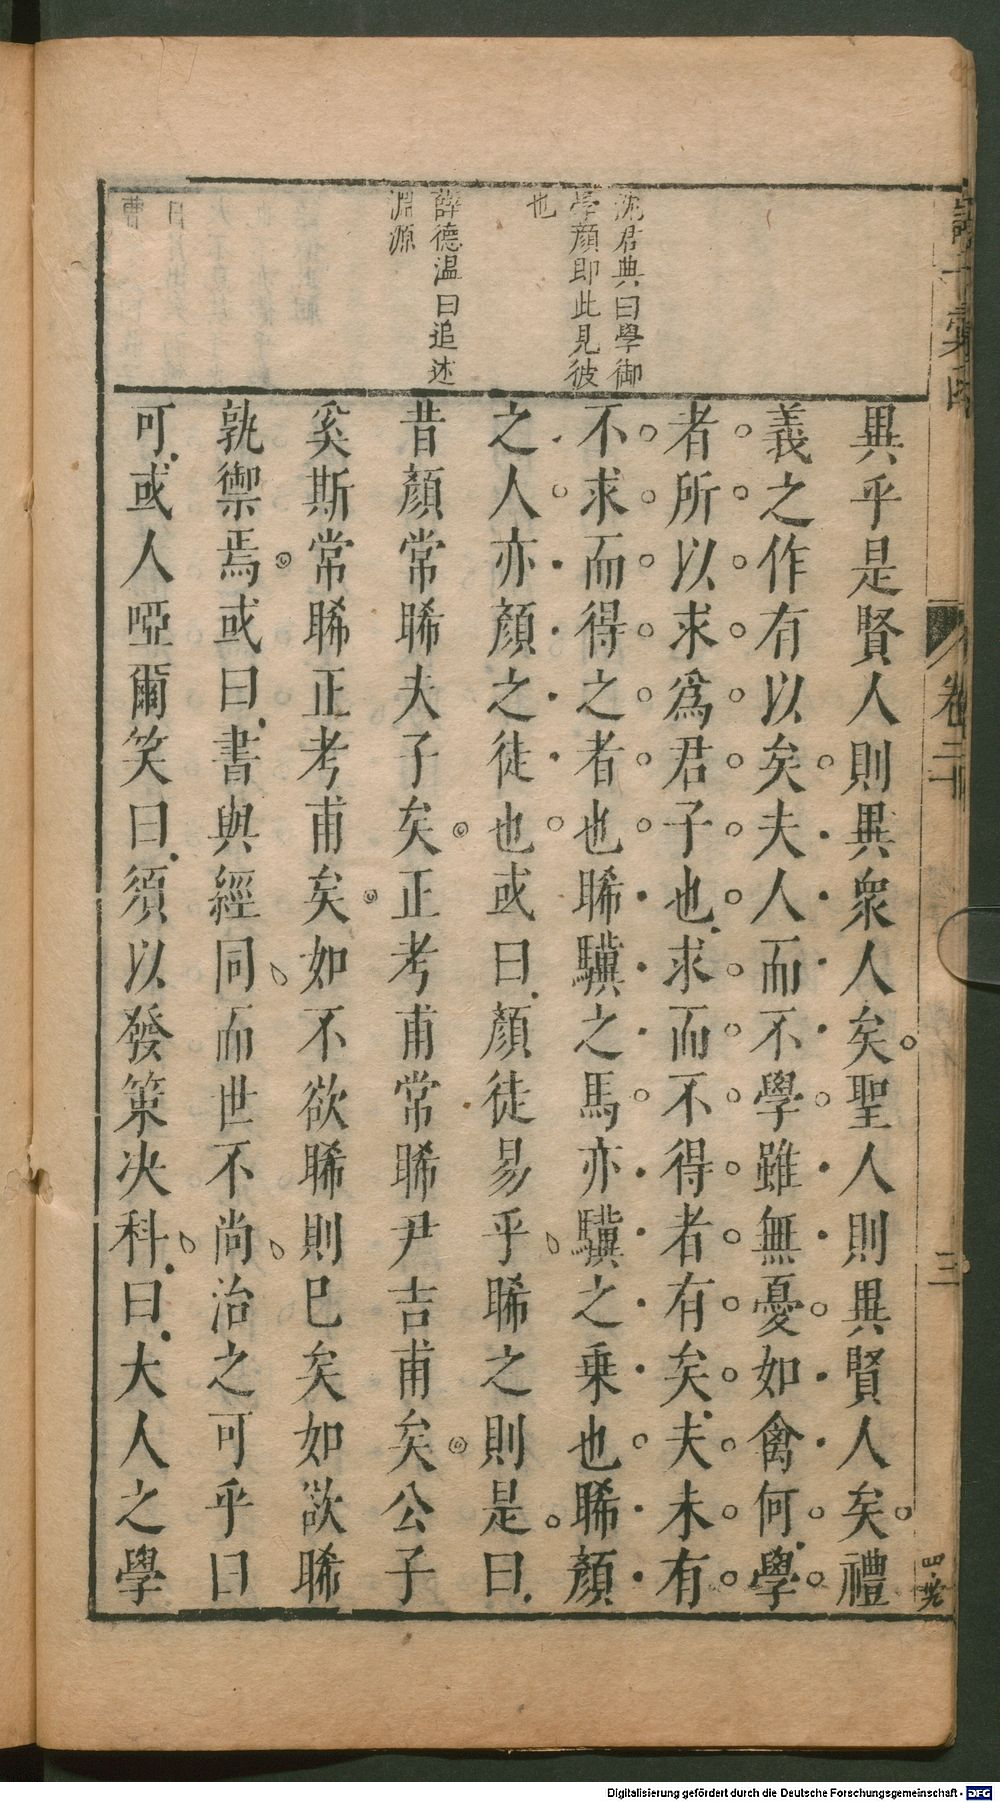 沈君典曰學御
學顏即此見彼
也
薛德温曰追述
淵源
異乎是賢人則異衆人矣聖人則異賢人矣禮
義之作有以矣夫人而不學雖無憂如禽何學
者所以求爲君子也求而不得者有矣夫未有
不求而得之者也睎驥之馬亦驥之乗也睎顏
之人亦顏之徒也或曰顏徒易乎睎之則是曰
昔顏常睎夫子矣正考甫常睎尹吉甫矣公子
奚斯常睎正考甫矣如不欲睎則已矣如欲睎
孰禦焉或曰書與經同而世不尚治之可乎曰
可或人啞爾笑曰須以發策决科曰大人之學
卷二
三
Digitalisierung gefördert durch die Deutsche Forschungsgemeinschaft - DFG